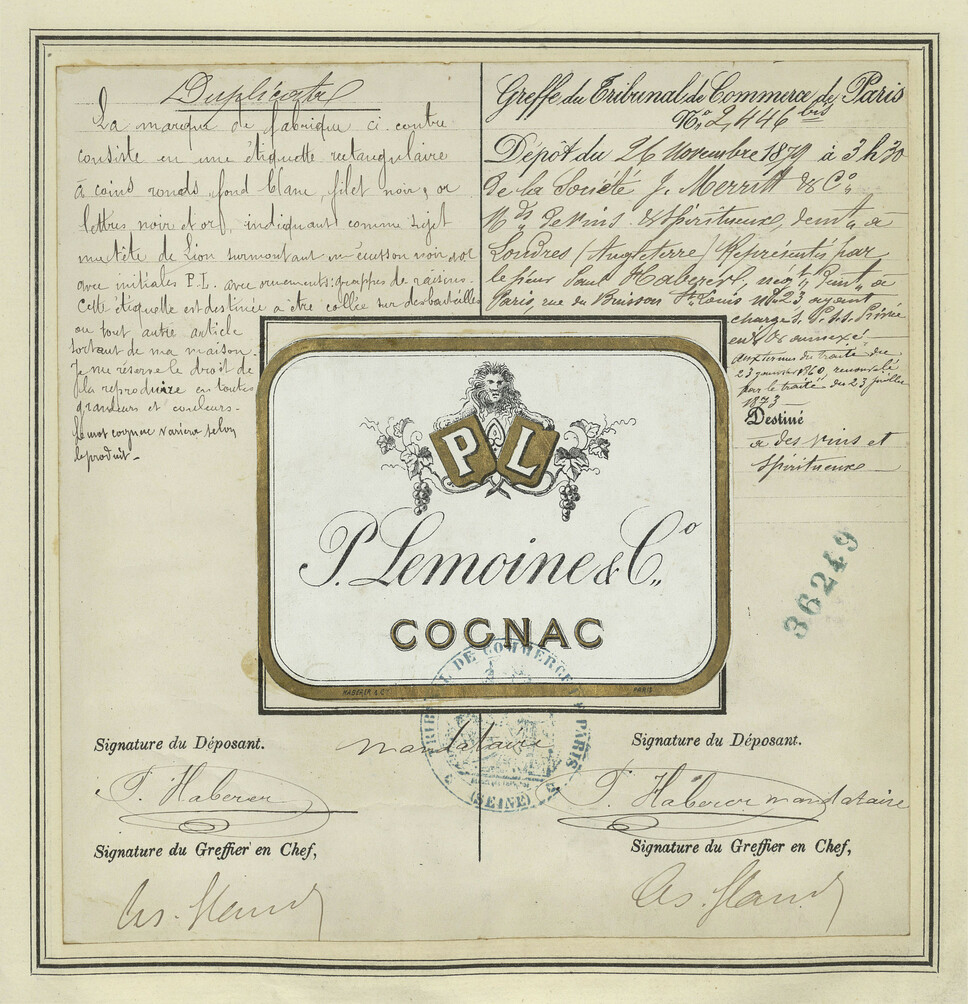 Duplicata
La marque de fabrique ci contre
consiste en une étiquette rectangulaire
à coins ronds, fond blanc, filet noir & or
lettres noir et or, indiquant comme sujet
une tête de Lion surmontant un écusson noir & or
avec initiales P.L. avec ornements: grappes de raisins.
Cette étiquette est destinée a être collée sur des bouteilles
ou tout autre article
sortant de ma maison.
Je me réserve le droit de
la reproduire en toutes
grandeurs et couleurs.
Le mot cognac variera selon
le produit.
Greffe du Tribunal de Commerce de Paris
N° 2,446 bis
Dépôt du 26 novembre 1879 à 3 h 30
de la Société J. Merritt & Co
Mds de vins & Spiritueux, demt à
Londres (Angleterre) Représentés par
le sieur Paul Haberer, négt, demt à
Paris, rue du Buisson St Louis No 23 ayant
charge s. p.
en annexé
aux termes du traité du
23 janvier 1860, renouvelé
par le traité du 23 juillet
1873
Destiné
a des vins et
spiritueux
P L
P. Lemoine & Co
COGNAC
HABERER & Cie PARIS
36249
TRIBUNAL DE COMMERCE PARIS
(SEINE)
mandataire
Signature du Déposant.
P. Haberer
Signature du Greffier en Chef,
Signature du Déposant.
P. Haberer mandataire
Signature du Greffier en Chef,